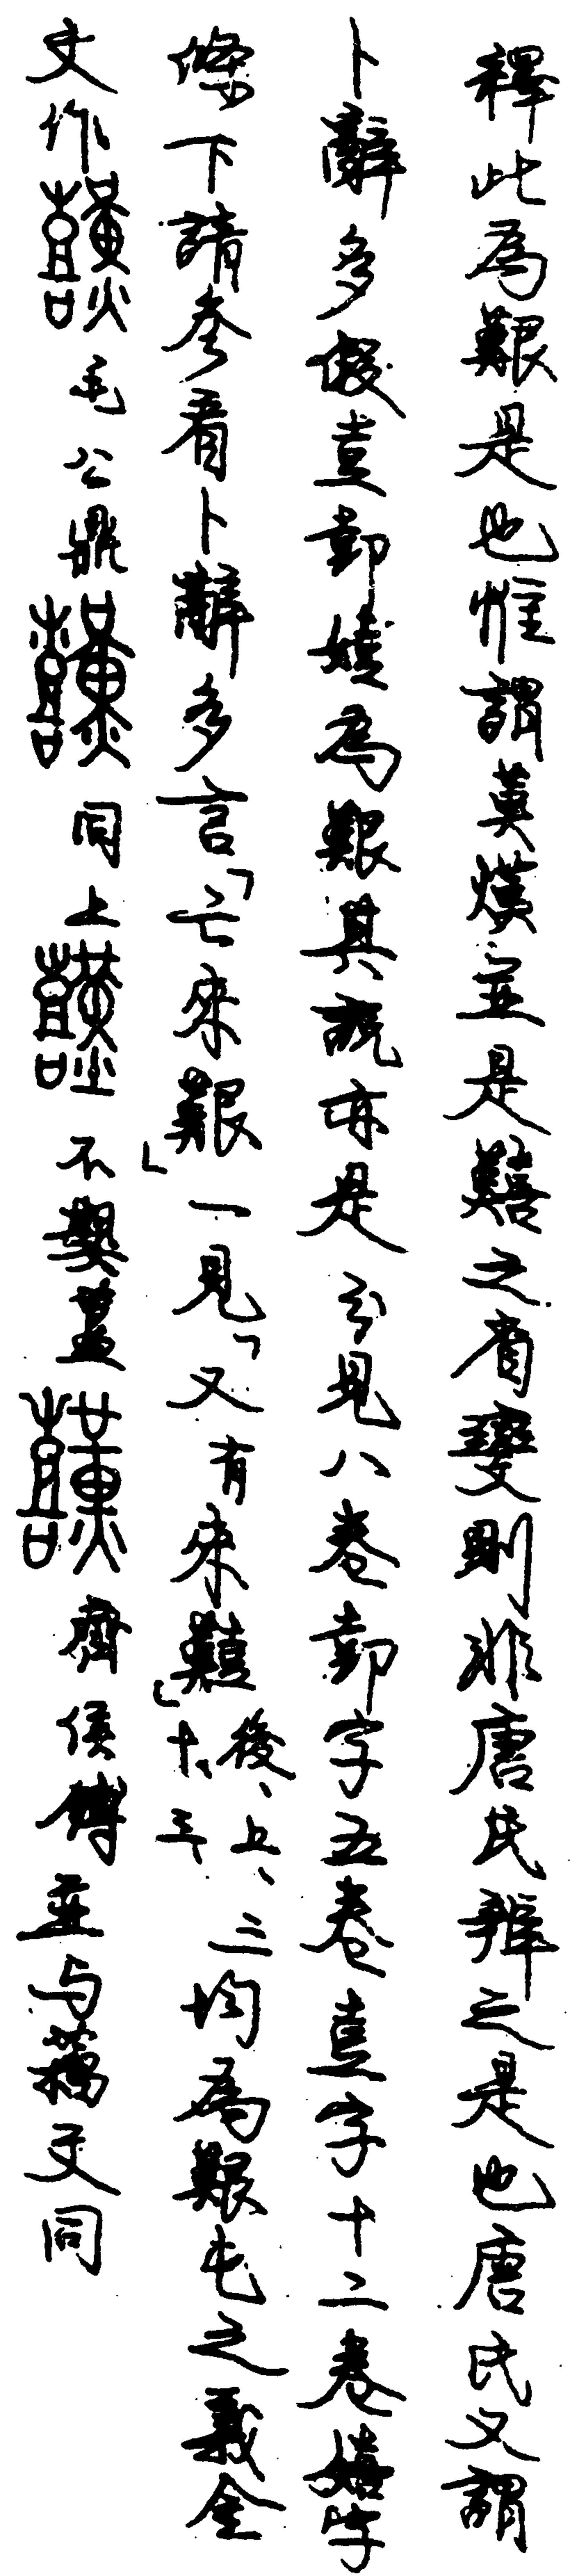 釋此為艱是也惟謂堇熯並是囏之省變則非唐氏辨之是也唐氏又謂
卜辭多假壴卽嬉為艱其說亦是分見八卷卽字五卷壴字十二卷嬉字
條下請參看卜辭多言「亡來艱」一見「又有來囏」後、上、三十、三均為艱屯之義金
文作毛公鼎同上不𡢁簋齊侯鎛並与籀文同